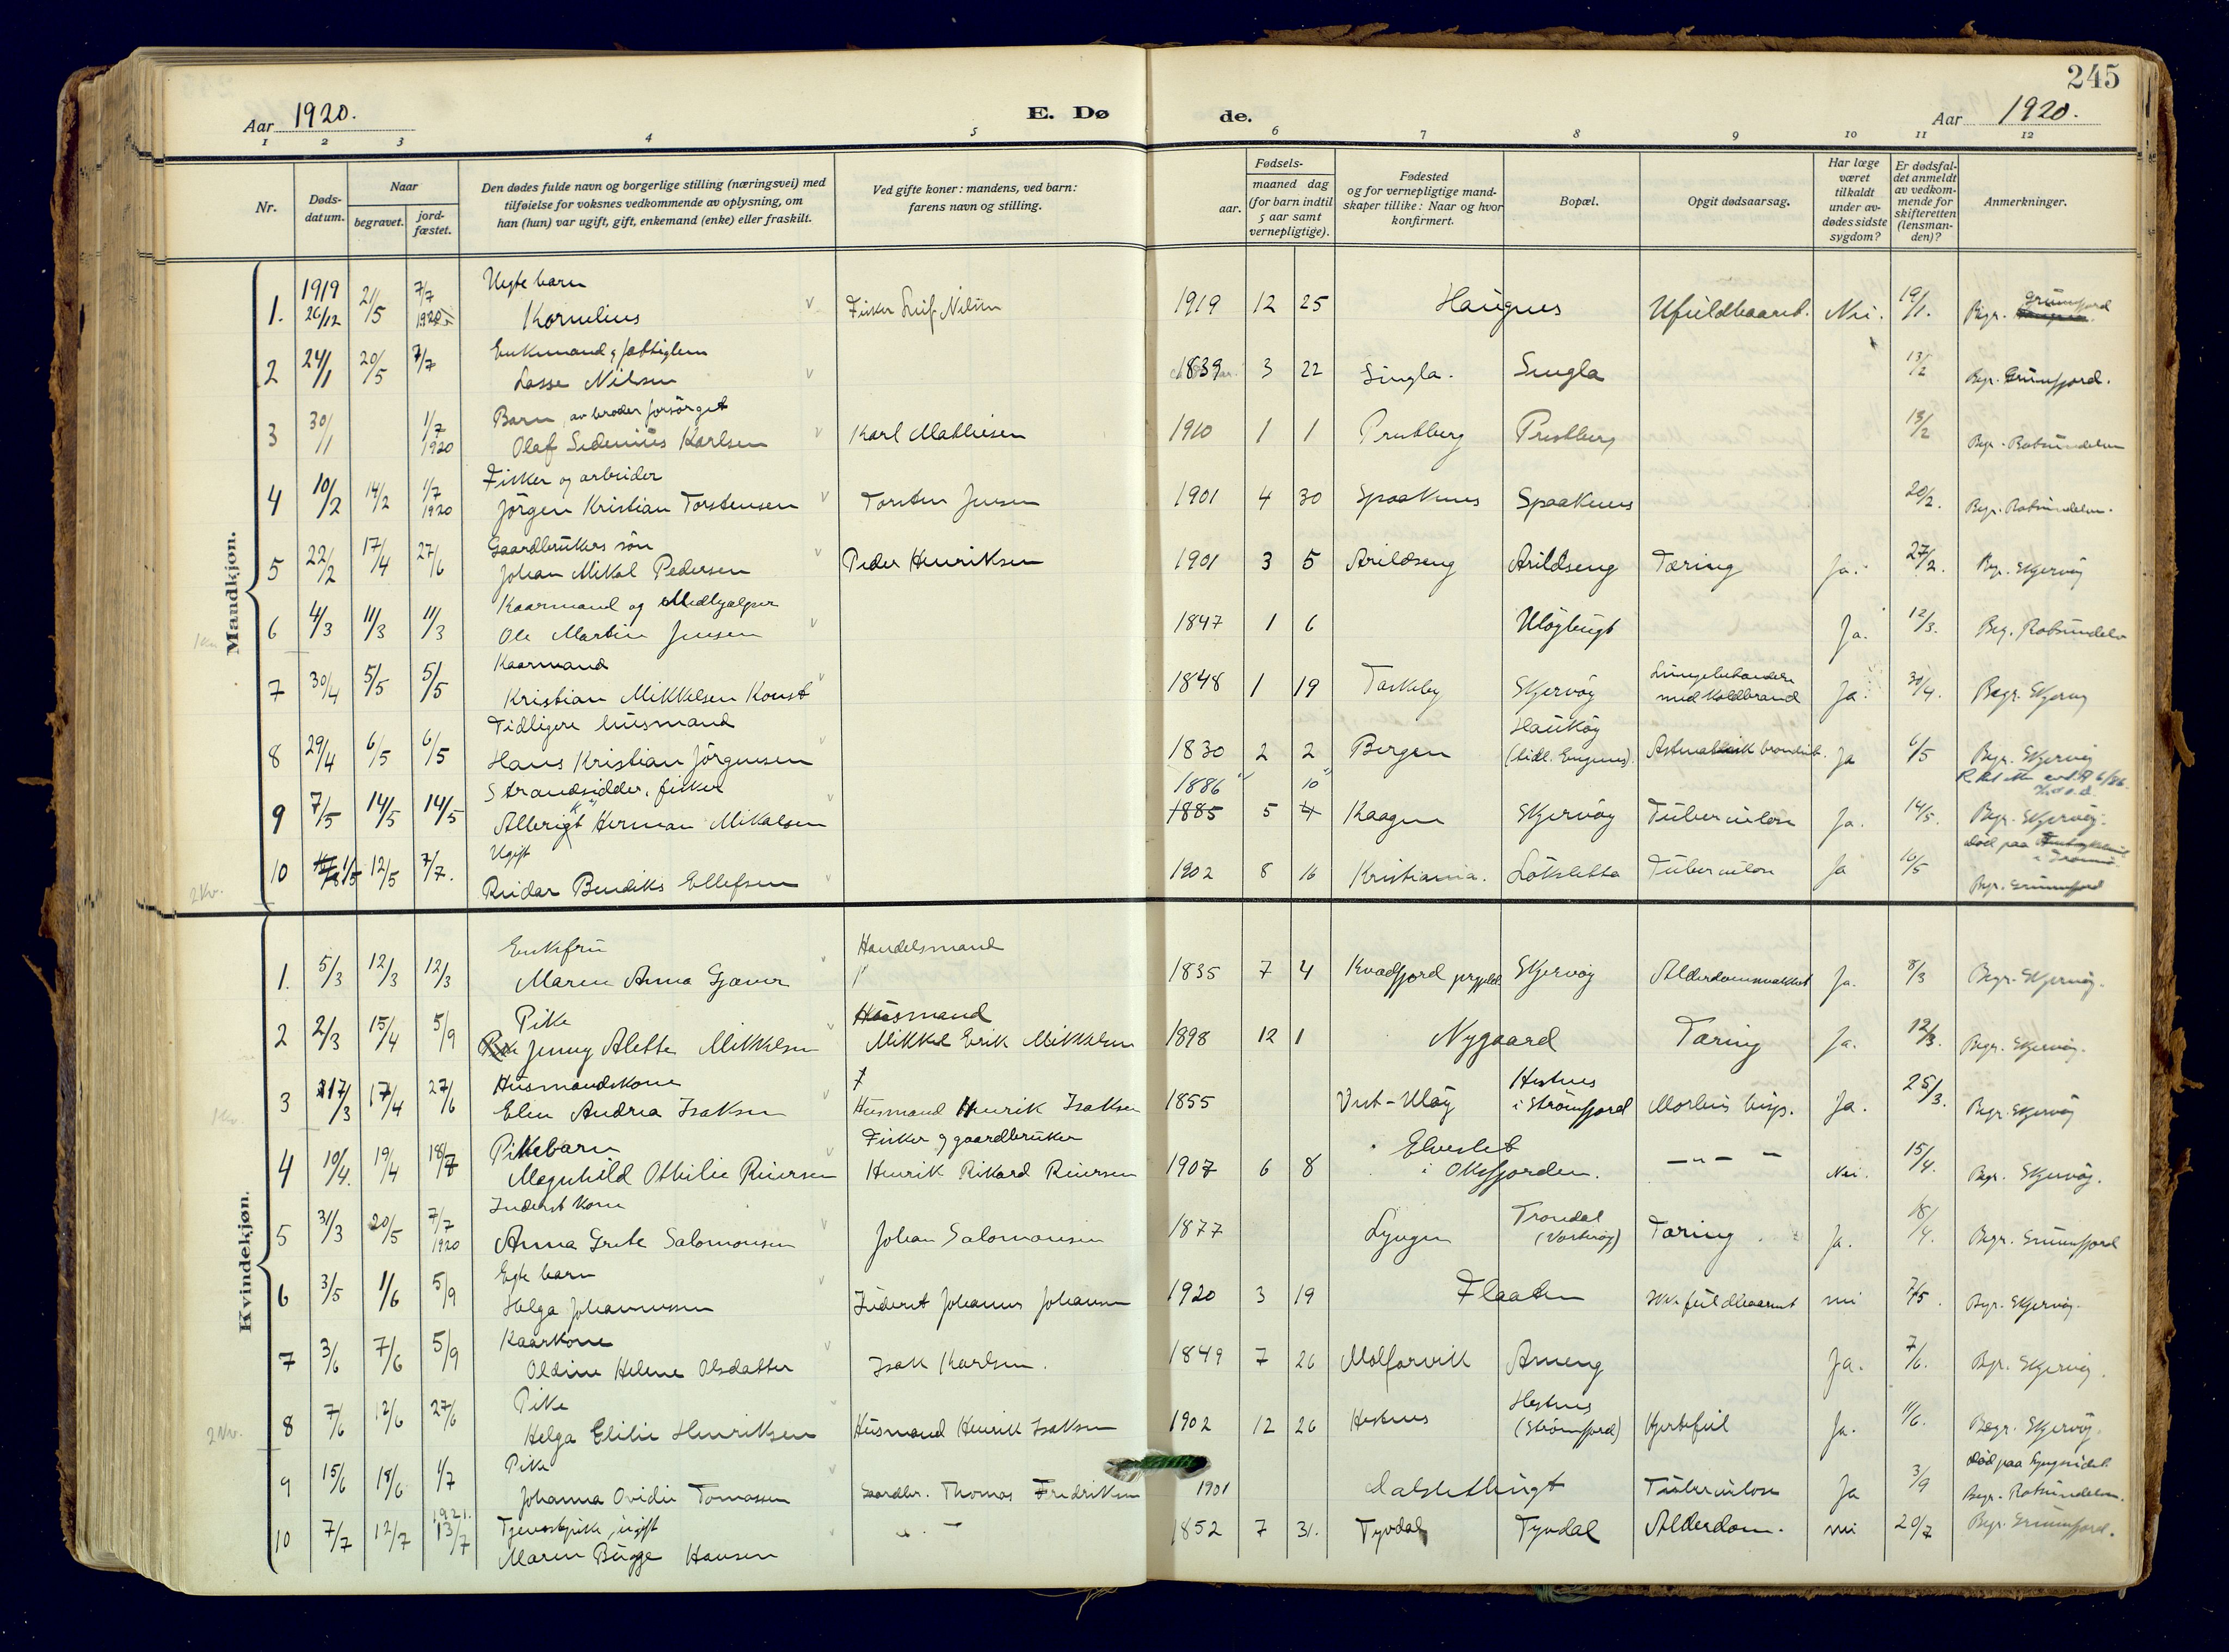 245
Aar 1920.
E. Dø de.
Aar 1920.
1 2 3 4 5 6 7 8 9 10 11 12
Nr.
Døds-
datum.
Naar
begravet.
jord-
fæstet.
Den dødes fulde navn og borgerlige stilling (næringsvei) med
tilføielse for voksnes vedkommende av oplysning, om
han (hun) var ugift, gift, enkemand (enke) eller fraskilt.
Ved gifte koner: mandens, ved barn:
farens navn og stilling.
aar.
Fødsels-
maaned dag
(for barn indtil
5 aar samt
vernepligtige).
Fødested
og for vernepligtige mand-
skaper tillike: Naar og hvor
konfirmert.
Bopæl.
Opgit dødsaarsag.
Har læge
været
tilkaldt
under av-
dødes sidste
sygdom?
Er dødsfal-
det anmeldt
av vedkom-
mende for
skifteretten
(lensman-
den)?
Anmerkninger.
Mandkjøn.
1919 7/7 Uegte barn Grunnfjord
1. 26/12 21/5 1920 Kornelius Fisker Leif Nilsen 1919 12 25 Haugnes Ufuldbaaret. Nei. 19/1. Begr.
Enkemand og fattiglem
2 24/1 20/5 7/7 Lasse Nilsen 1839 3 22 Singla. Singla 13/2 Begr. Grunnfjord.
Barn, av broder forsörget
3 30/1 1/7 1920 Olaf Sedenius Karlsen Karl Mathiesen 1910 1 1 Prestberg Prestberg 13/2 Begr. Rotsundelven
Fisker og arbeider
4 10/2 14/2 1/7 1920 Jörgen Kristian Torstensen Torsten Jensen 1901 4 30 Spaaknes Spaaknes 20/2. Begr. Rotsundelven.
Gaardbrukers søn
5 22/2 17/4 27/6 Johan Mikal Pedersen Peder Henriksen 1901 3 5 Arildseng Arildseng Tæring Ja. 27/2. Begr. Skjervöy
Kaarmand og Medhjælper
6 4/3 11/3 11/3 Ole Martin Jensen 1847 1 6 Ulöybugt Ja. 12/3. Beg. Rotsundelv
Kaarmand
7 30/4 5/5 5/5 Kristian Mikkelsen Konst 1848 1 19 Taskeby Skjervöy Lungebetændelse
med Koldbrand Ja. 30/4. Begr. Skjervöy
Tidligere husmand Hauköy
8 29/4 6/5 6/5 Hans Kristian Jörgensen 1830 2 2 Bergen (tidl. Engnes). Ja 6/5 Begr. Skjervöy
Strandsidder, fisker 1886 10
9 7/5 14/5 14/5 Albrigt Herman Mikalsen 1885 5 4 Kaagen Skjervöy Tuberculose Ja. 14/5. Begr. Skjervöy.
Ugift Död paa i Tromsö
10 1/5 12/5 7/7. Reidar Bendiks Ellefsen 1902 8 16 Kristiania. Lökslette Tuberculose Ja 10/5 Begr. Grunnfjord
2 Kv.
Kvindekjøn.
Enkefru Handelsmand
1. 5/3 12/3 12/3 Maren Anna Gjæver 1835 7 4 Kvædfjord prgjeld Skjervöy Alderdomssvakhet Ja. 8/3 Begr. Skjervöy.
Pike Husmand
2 2/3 15/4 5/9 Jenny Alette Mikkelsen Mikkel Erik Mikkelsen 1898 12 1 Nygaard Tæring Ja. 12/3. Begr. Skjervöy.
Husmandskone Hestnes
3 17/3 17/4 27/6 Elen Andrea Isaksen Husmand Henrik Isaksen 1855 Vest-Ulöy i Strömfjord Morbus hisp. Ja. 25/3. Begr. Skjervöy
Pikebarn Fisker og gaardbruker Elveslet
4 10/4. 19/4 18/7 Magnhild Othilie Reiersen Henrik Rikard Reiersen 1907 6 8 i Oksfjorden. — " — — Nei. 15/4. Begr. Skjervöy.
Inderst kone Trondal
5 31/3 20/5 7/7 1920 Anna Grete Salomonsen Johan Salomonsen 1877 Lyngen (Vorteröy) Tæring. Ja. 18/4. Begr. Grunnfjord
Egte barn
6 3/5 1/6 5/9 Helga Johannessen Inderst Johannes Johansen 1920 3 19 Flaaten Ikke fuldbaaret nei 7/5. Begr. Skjervöy.
Kaarkone
7 3/6 7/6 5/9 Oldine Helene Olsdatter Isak Karlsen. 1849 7 26 Molforvik Arneng Ja. 7/6. Begr. Skjervöy.
Pike Hestnes
8 7/6 12/6 27/6 Helga Elilie Henriksen Husmand Henrik Isaksen 1902 12 26 Hestnes (Strömfjord) Hjertefeil Ja. 11/6. Begr. Skjervöy.
2 Kv.
Pike Död paa Lyngseidet
9 15/6 18/6 1/7 Johanna Ovidie Tomassen Gaardbr. Thomas Fredriksen 1901 Dalsletbugt Tuberculose Ja 3/9 Begr. Rotsundelven.
1921. Tjenestepike, ugift
10 7/7 12/7 13/7 Maren Bugge Hansen " — 1852 7 31. Tyvdal Tyvdal Alderdom. nei 20/7 Begr. Grunnfjord.